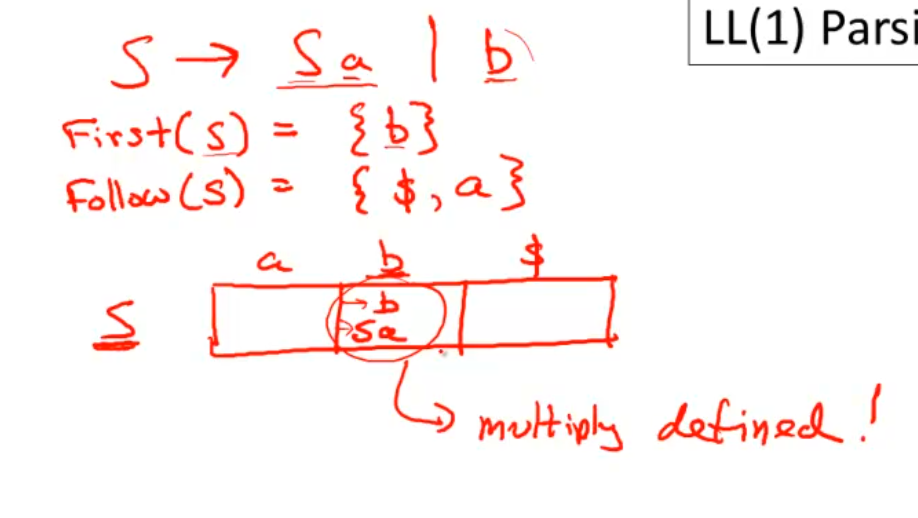 LL(1) Parsi
S → Sa | b
First(S) = {b}
Follow(S) = {$, a}
a b $
S → b
→ Sa
multiply defined!